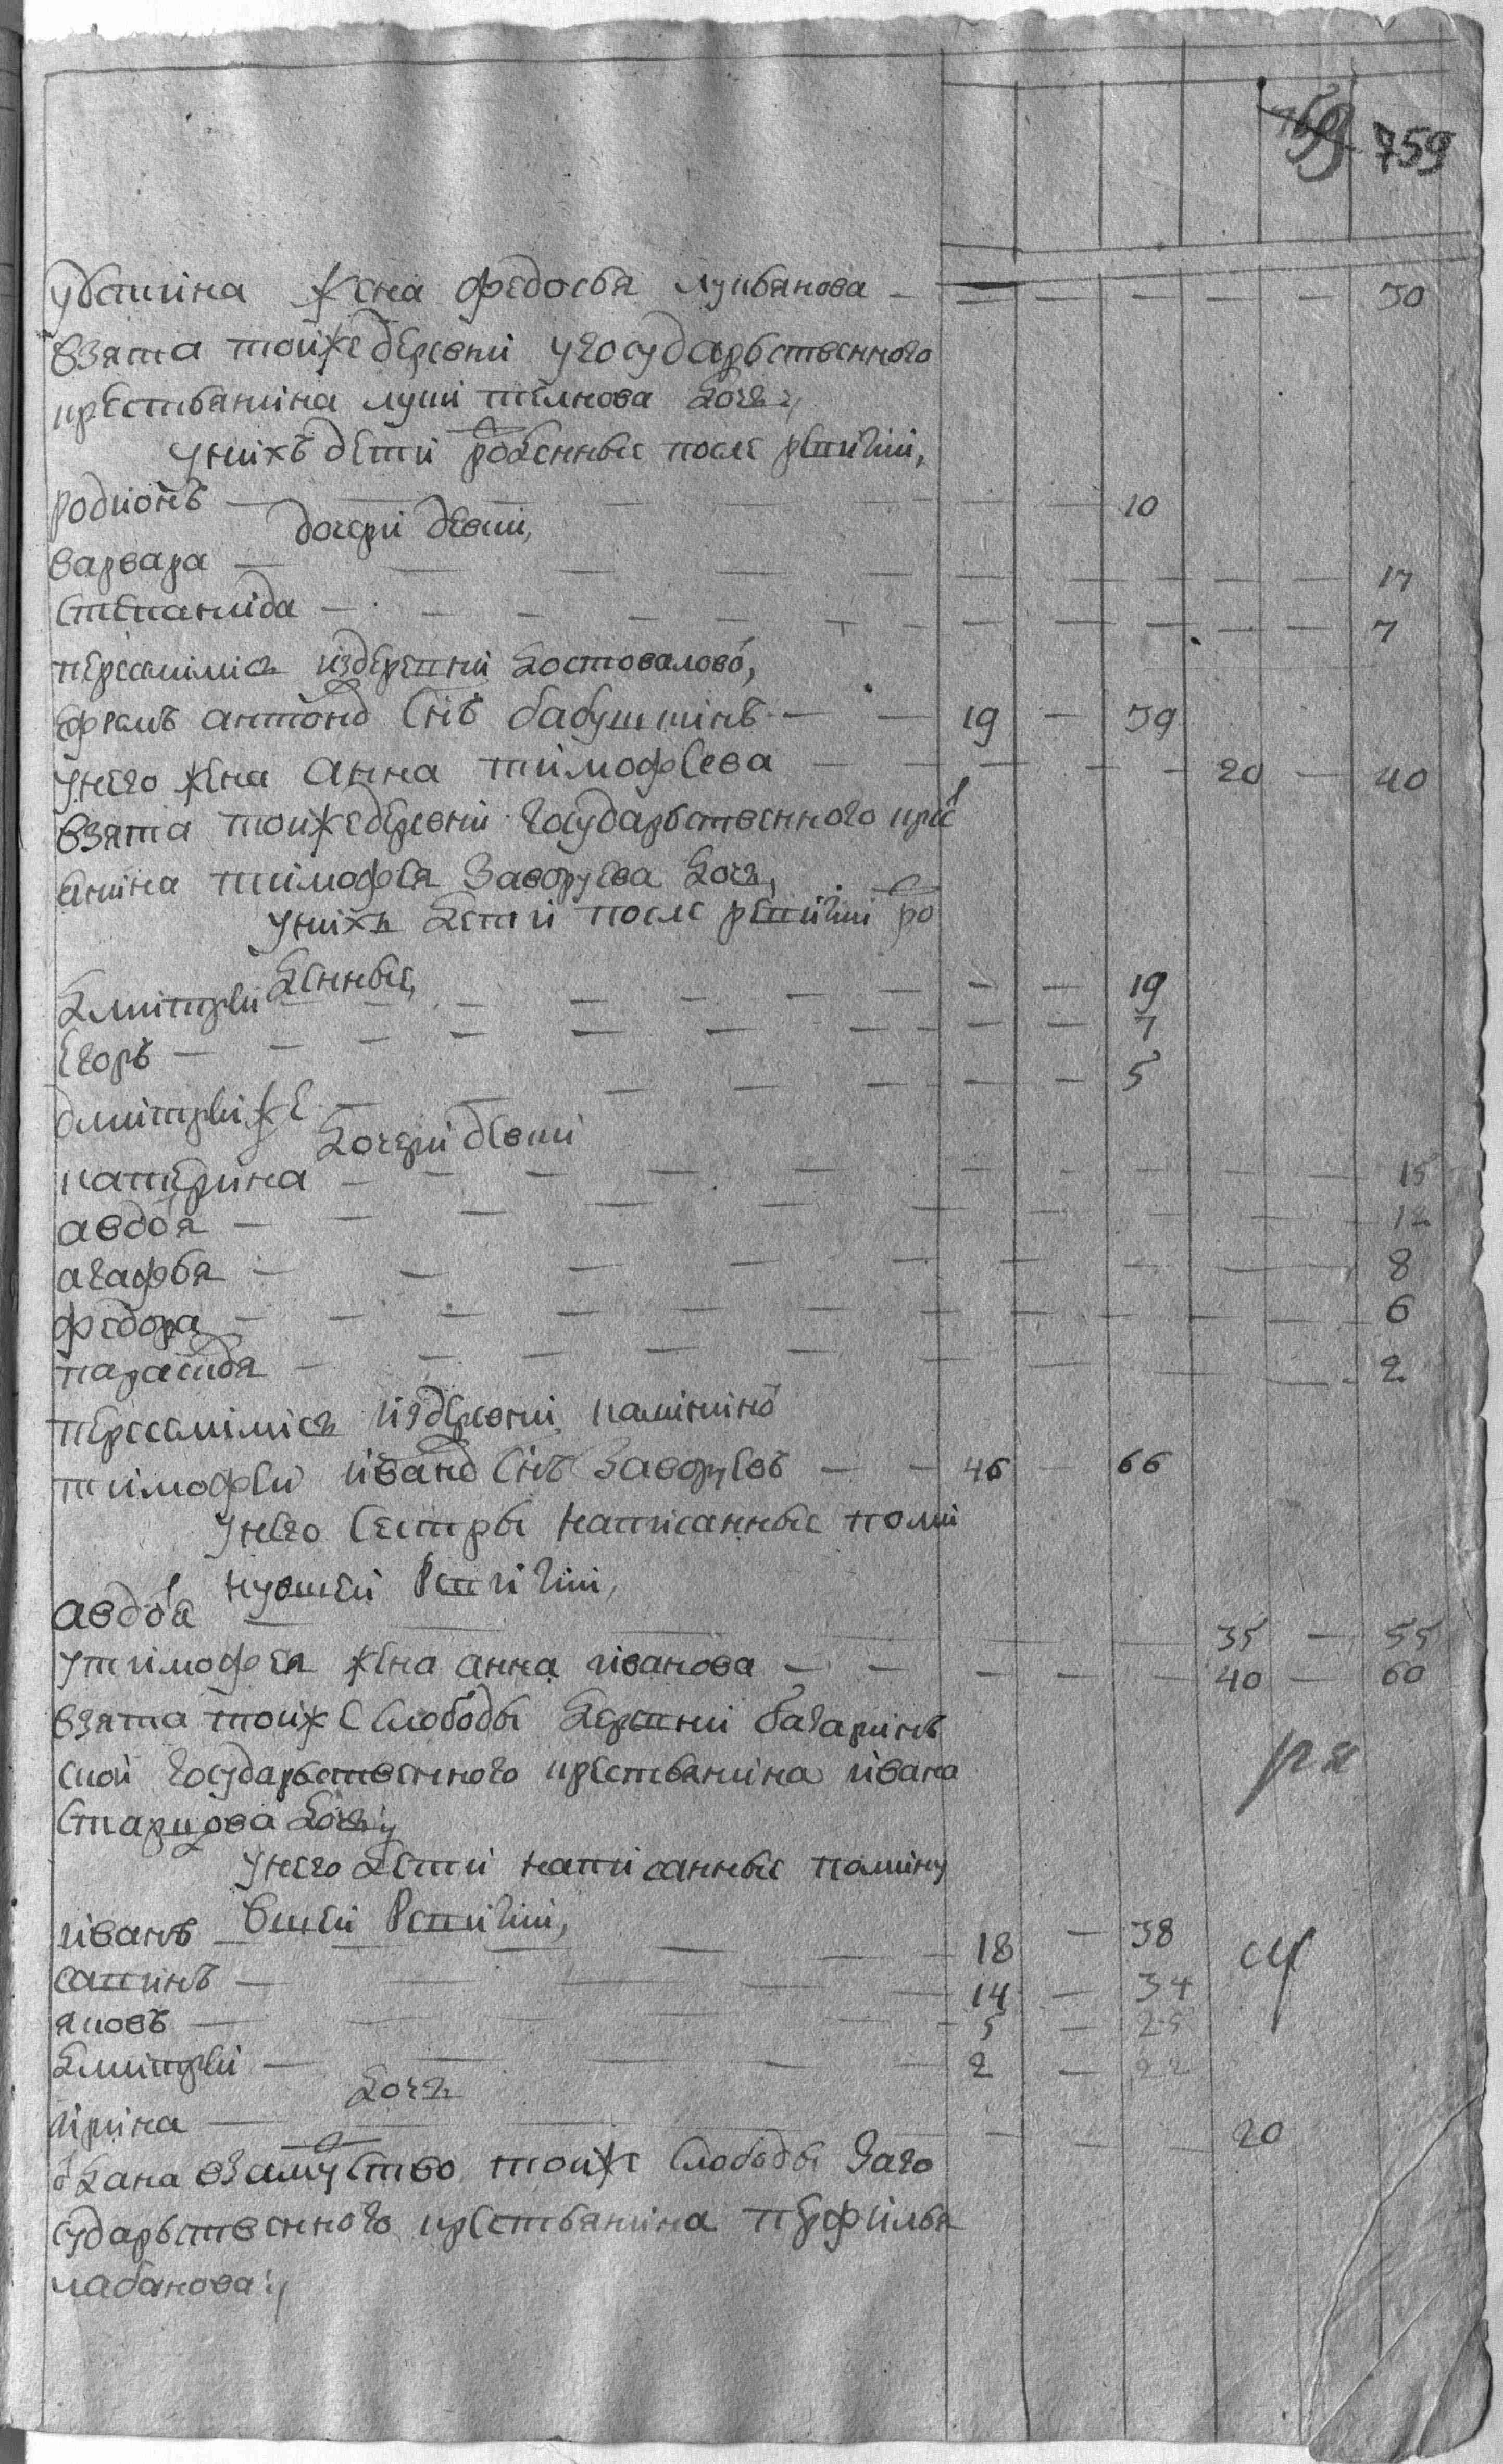 759 759
устина жена федосья лукьянова — — — — — 30
взята тойже деревни у государственного
крестьянина луки тилкова дочь
у них дети рожденные после ревизии,
родионъ — — — 10
дочери девки,
варвара — — — 17
степанида — — — 7
переселился из деревни костовалово,
ефимъ антоновъ снъ бабушкинъ — — 19 — 39
у него жена анна тимофеева — — — 20 — 40
взята тойже деревни государственного крес
янина тимофея Заворуева дочь,
у нихъ дети после ревизии ро
жденные,
дмитрей — — — 19
Егоръ — — — 7
дмитрей же — — — 5
дочери девки
катерина — — — 15
авдотя — — — 12
агафья — — — 8
федора — — — 6
парасковя — — — 2
переселился из деревни калинино
тимофей ивановъ снъ Заворуевъ — — 46 — 66
у него сестры написанные поми
нувшей Ревизии,
авдотя — — — 35 — 55
у тимофея жена анна иванова — — — 40 — 60
взята тойже слободы деревни багарин
ской государственного крестьянина ивана
Старцова дочь
у него дети написанные помину
вшей Ревизии,
иванъ — — — 18 — 38
савинъ — — — 14 — 34
яковъ — — — 5 — 25
дмитрей — — — 2 — 22
дочь
ирина — — — 20
одана взамуство тойже слободы заго
сударственного крестьянина перфилья
лабанова